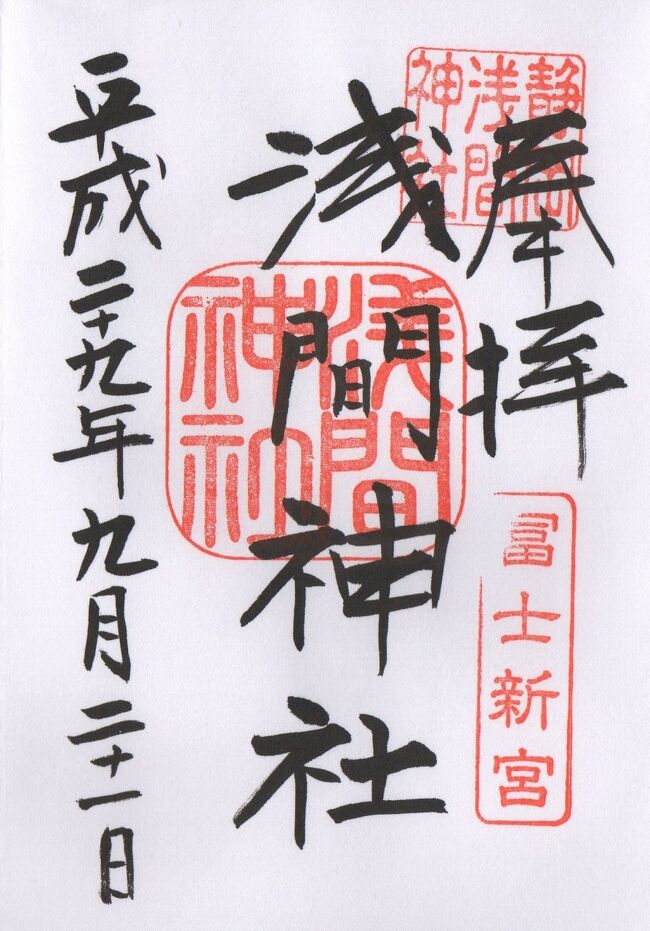 奉拝
静岡浅間神社
富士新宮
浅間神社
浅間神社
平成二十九年九月二十一日